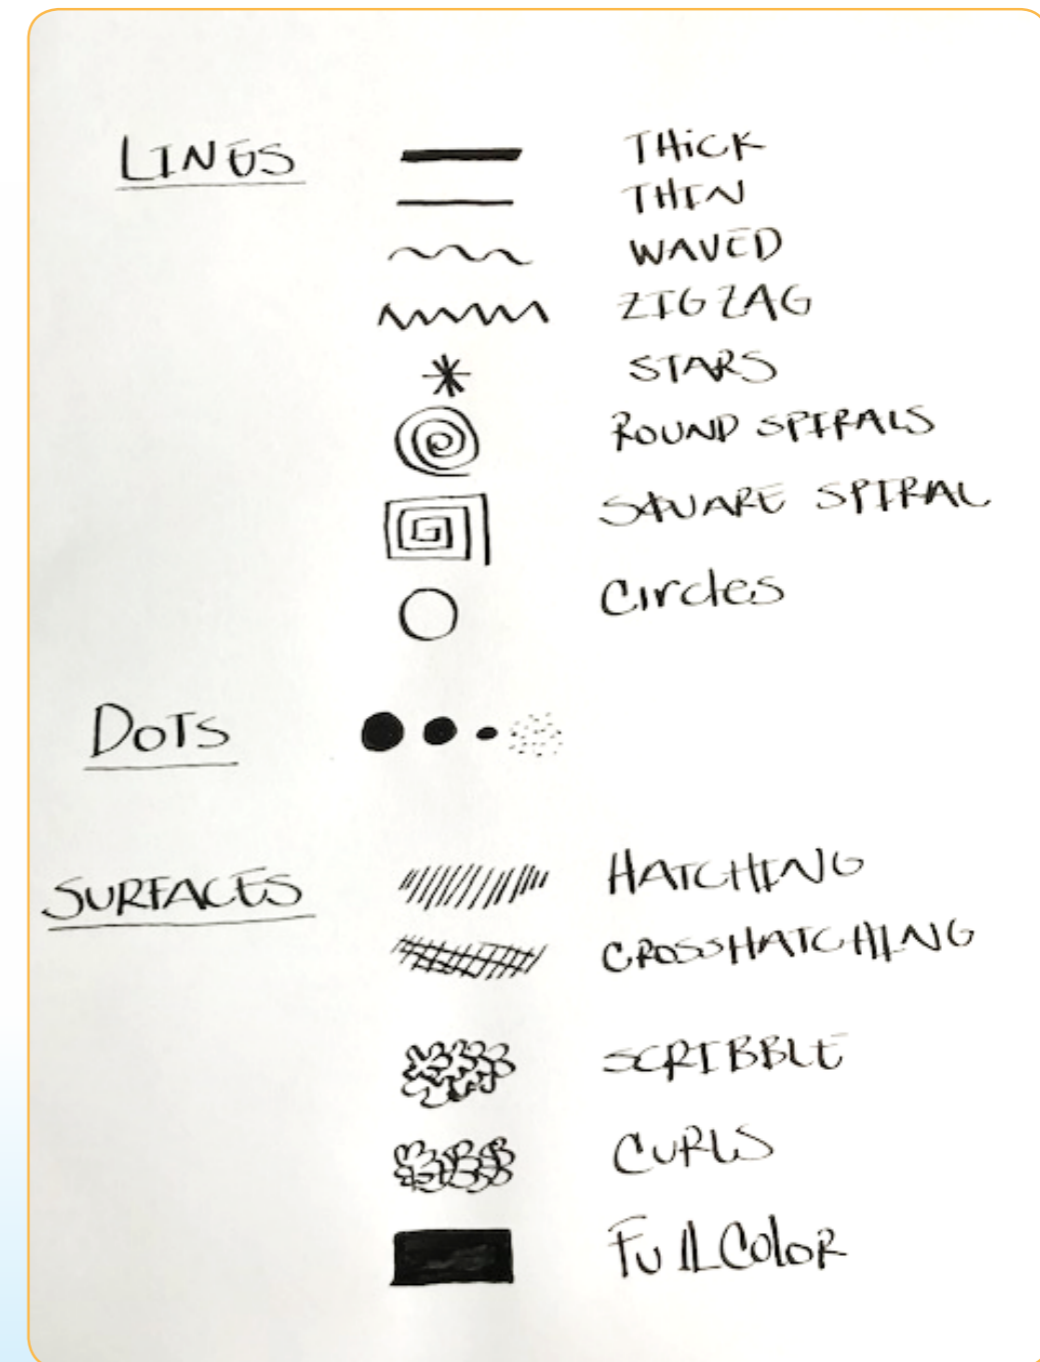 LINES
THiCK
THIN
WAVED
ZIGZAG
STARS
ROUND SPIRALS
SQUARE SPIRAL
Circles
DOTS
SURFACES
HATCHING
CROSSHATCHING
SCRIBBLE
CURLS
FullColoR